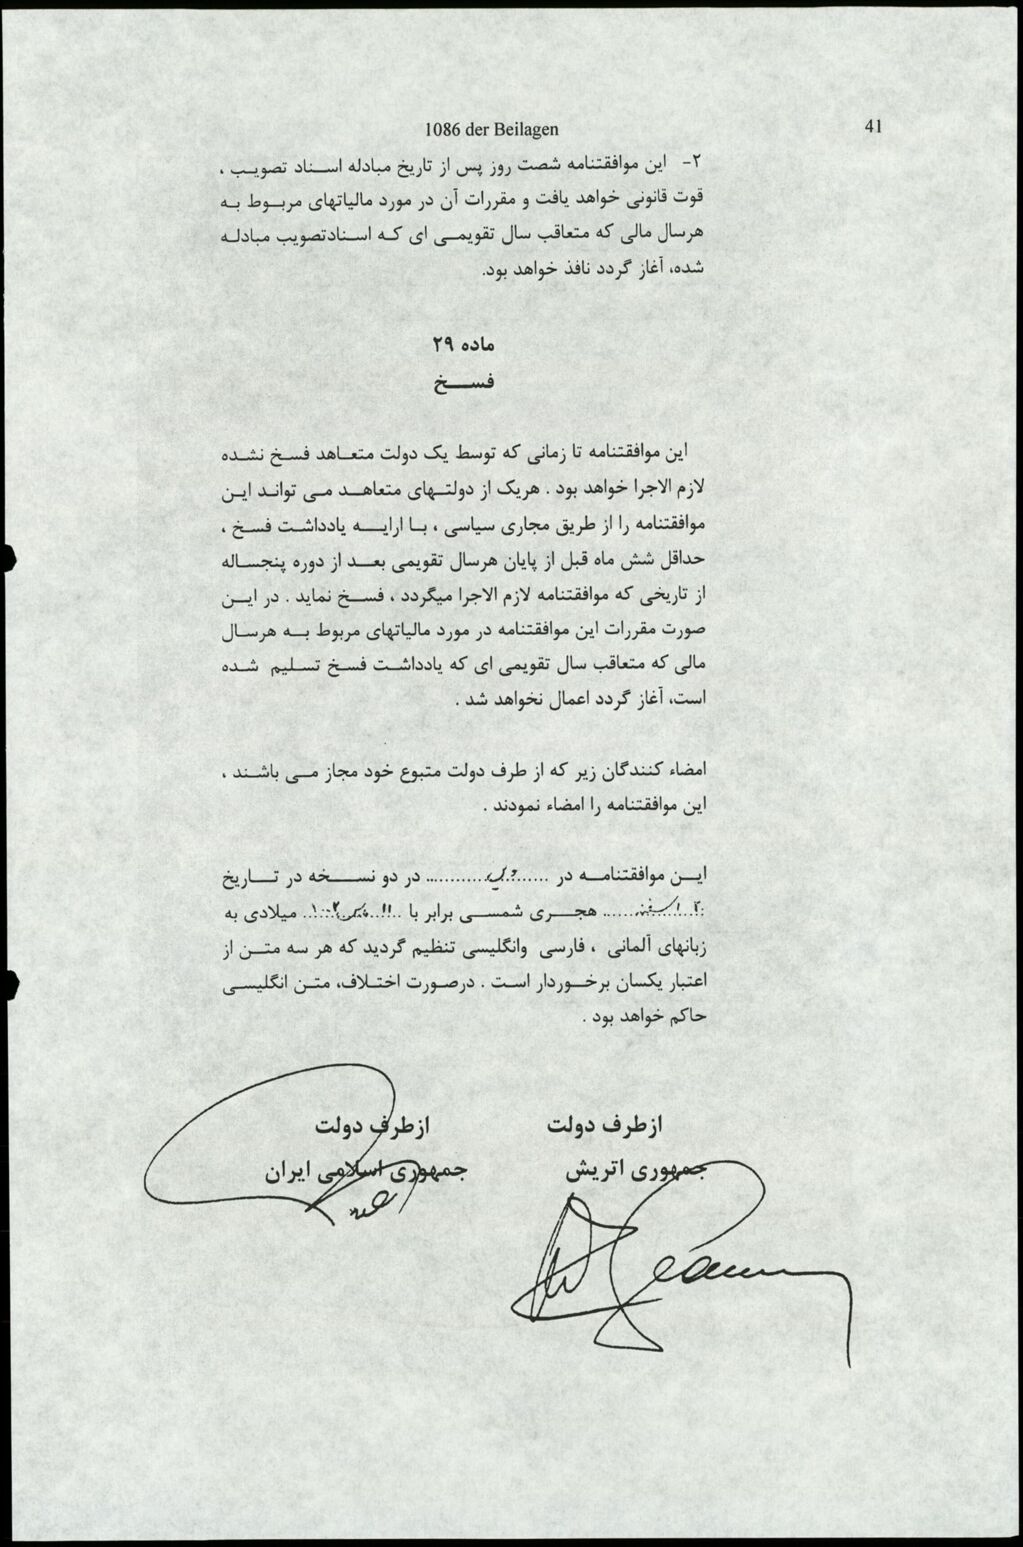 1086 der Beilagen
41
۲- این موافقتنامه شصت روز پس از تاریخ مبادله اسناد تصویب ،
قوت قانونی خواهد یافت و مقررات آن در مورد مالیاتهای مربوط به
هرسال مالی که متعاقب سال تقویمی ای که اسنادتصویب مبادله
شده، آغاز گردد نافذ خواهد بود.
ماده ۲۹
فسخ
این موافقتنامه تا زمانی که توسط یک دولت متعاهد فسخ نشده
لازم الاجرا خواهد بود . هریک از دولتهای متعاهد می تواند این
موافقتنامه را از طریق مجاری سیاسی ، با ارایه یادداشت فسخ ،
حداقل شش ماه قبل از پایان هرسال تقویمی بعد از دوره پنجساله
از تاریخی که موافقتنامه لازم الاجرا میگردد ، فسخ نماید . در این
صورت مقررات این موافقتنامه در مورد مالیاتهای مربوط به هرسال
مالی که متعاقب سال تقویمی ای که یادداشت فسخ تسلیم شده
است، آغاز گردد اعمال نخواهد شد .
امضاء کنندگان زیر که از طرف دولت متبوع خود مجاز می باشند ،
این موافقتنامه را امضاء نمودند .
این موافقتنامه در ........ در دو نسخه در تاریخ
........ هجری شمسی برابر با ۱۱ مارس ۲۰۰۲ میلادی به
زبانهای آلمانی ، فارسی وانگلیسی تنظیم گردید که هر سه متن از
اعتبار یکسان برخوردار است . درصورت اختلاف، متن انگلیسی
حاکم خواهد بود .
ازطرف دولت
جمهوری اتریش
ازطرف دولت
جمهوری اسلامی ایران